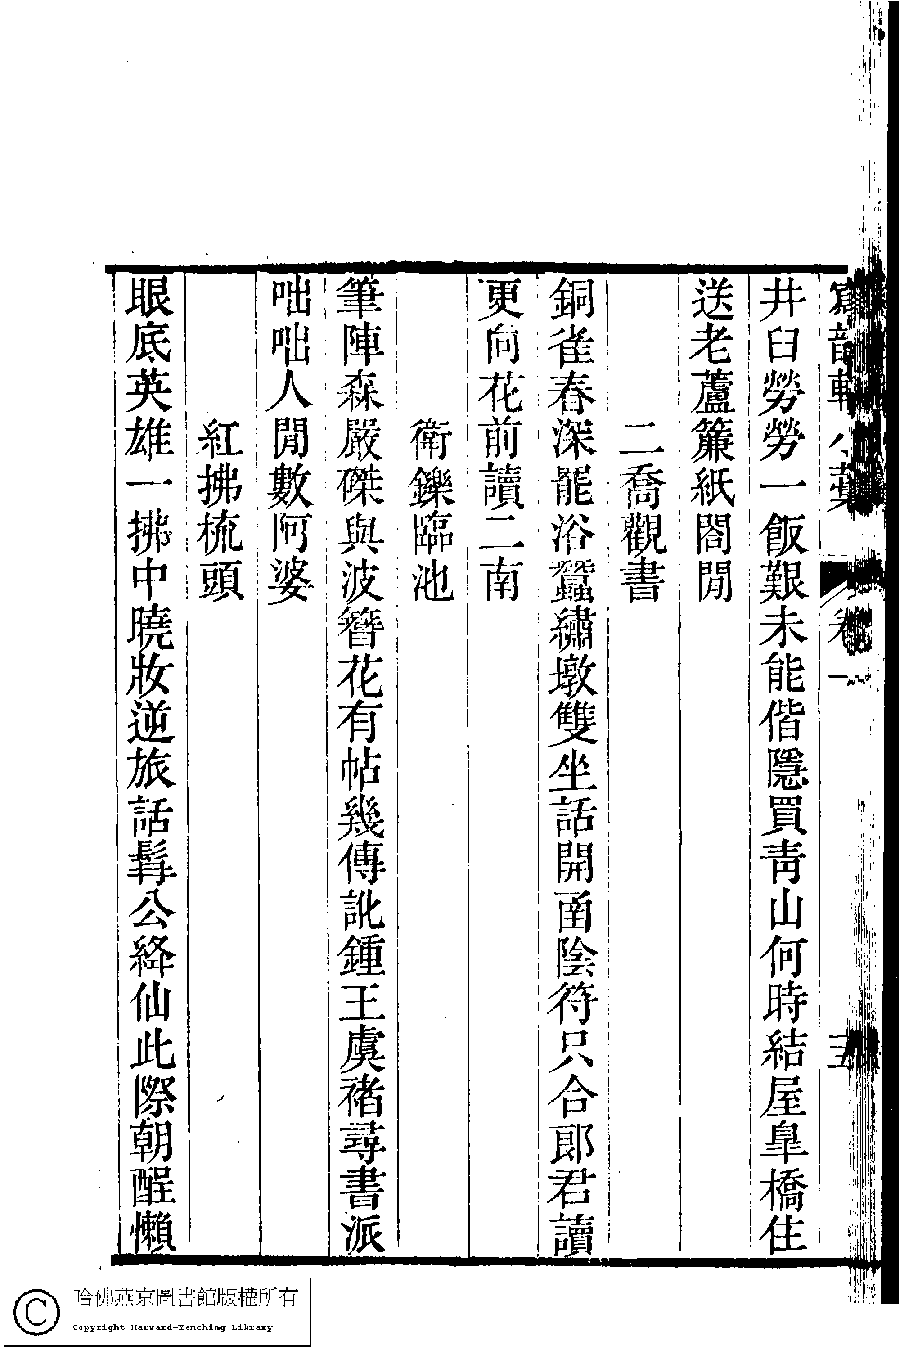 井臼勞勞一飯艱未能偕隱買青山何時結屋臯橋住
送老蘆簾紙閤閒
二喬觀書
銅雀春深罷浴蠶繡墩雙坐話開函陰符只合郎君讀
更向花前讀二南
衛鑠臨池
筆陣森嚴磔與波簪花有帖幾傳訛鍾王虞褚尋書派
咄咄人閒數阿婆
紅拂梳頭
眼底英雄一拂中曉妝逆旅話髯公絳仙此際朝酲懶
哈佛燕京圖書館版權所有
Copyright Harvard-Yenching Library